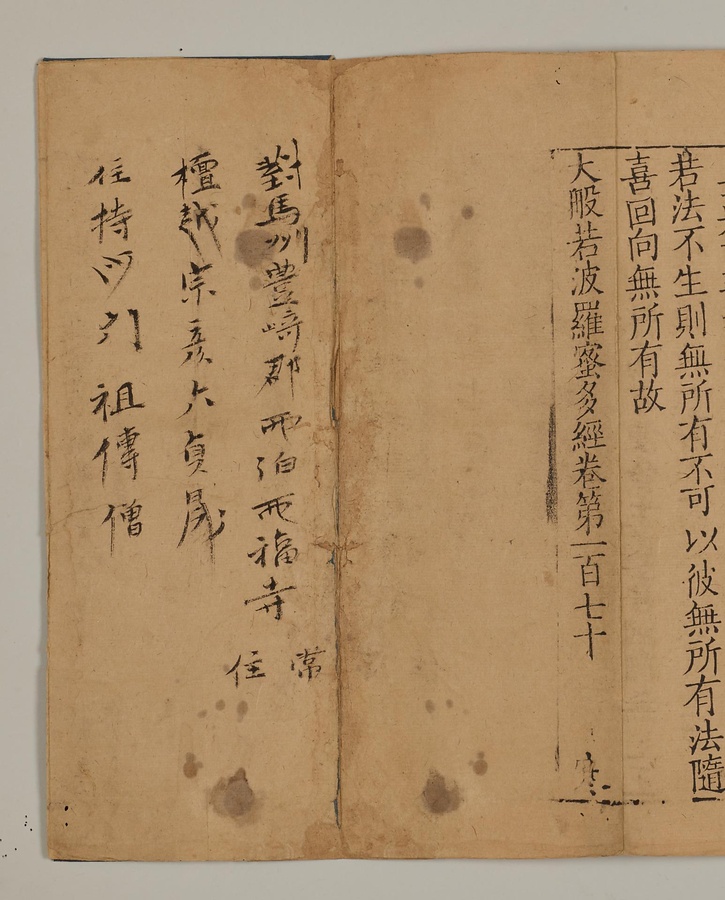 若法不生則無所有不可以彼無所有法隨
喜回向無所有故
大般若波羅蜜多經卷第一百七十
寒
對馬州豊﨑郡西泊西福寺
常
住
檀越宗彦六貞晟
住持
祖傳僧